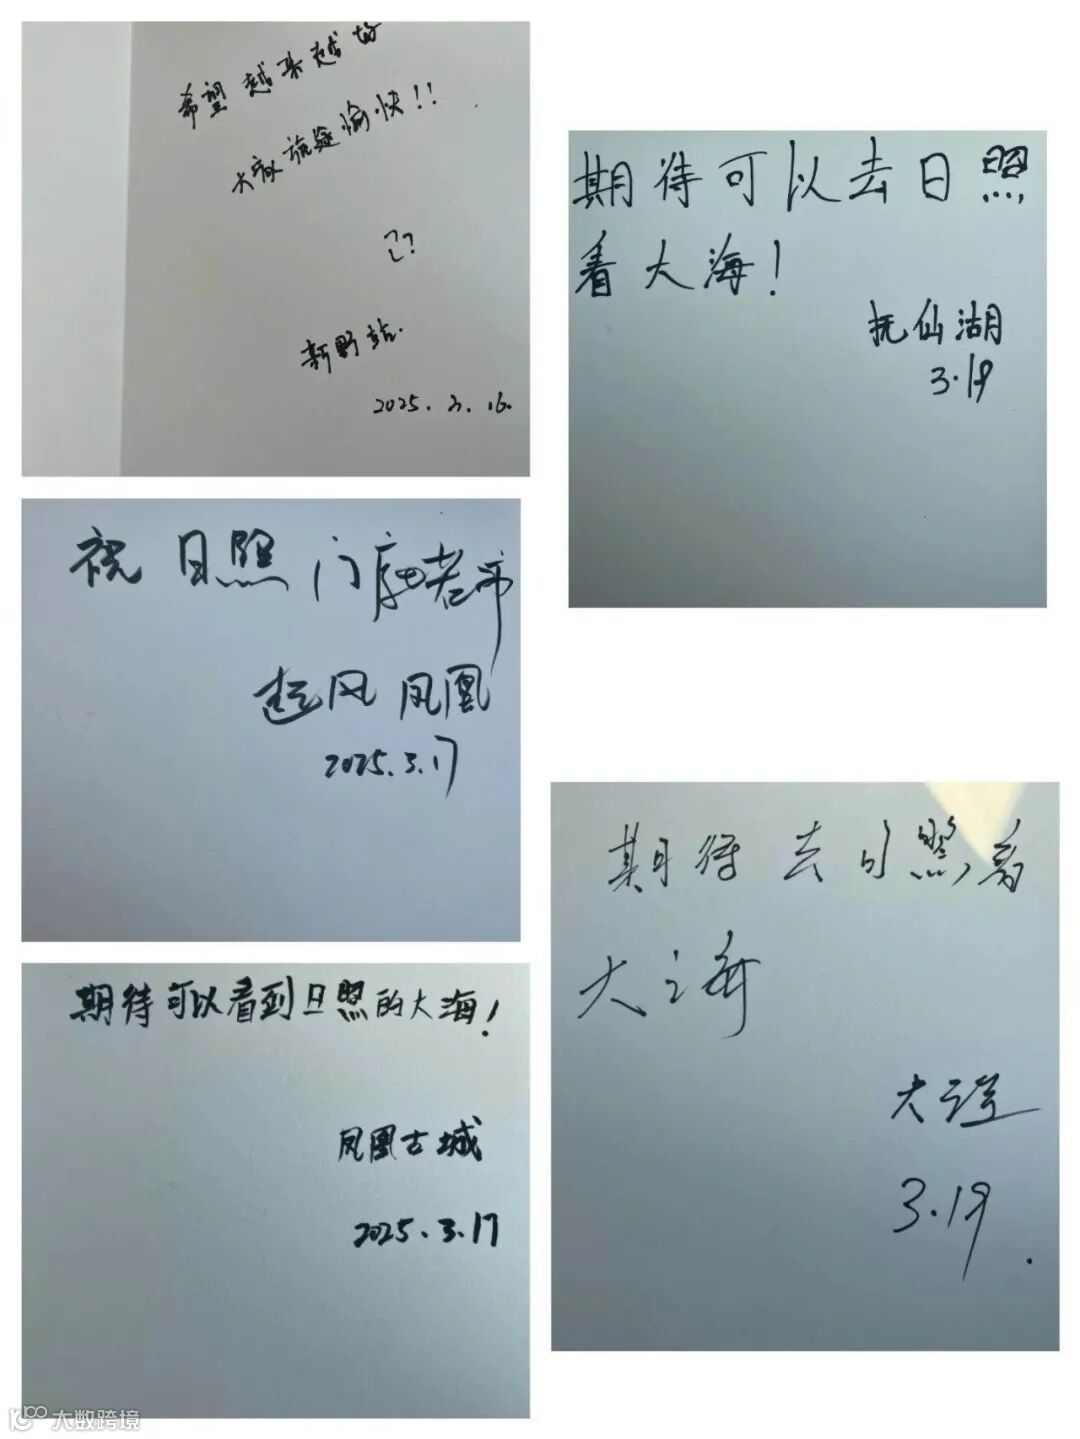 希望越来越好
大家旅途愉快!!
新野站.
2025.3.16.
期待可以去日照
看大海!
抚仙湖
3.19
祝日照门庭若市
起风凤凰
2025.3.17
期待去日照看
大海
大理
3.19.
期待可以看到日照的大海!
凤凰古城
2025.3.17
大数跨境